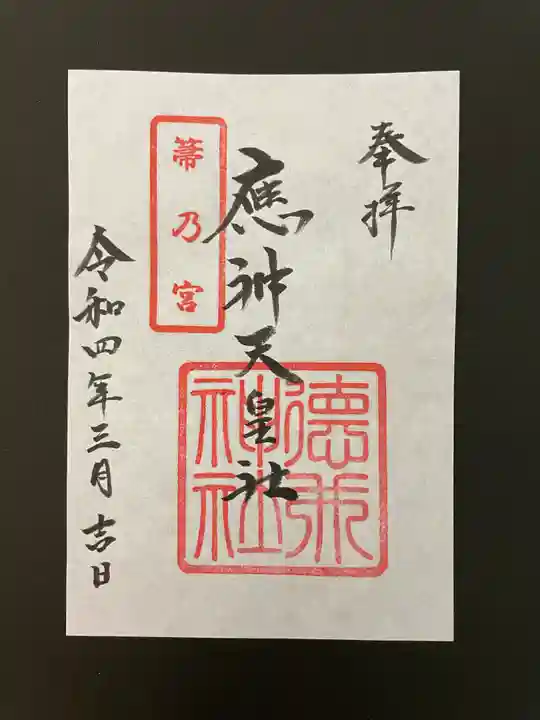 奉拝
應神天皇社
德永
神社
箒乃宮
令和四年三月吉日